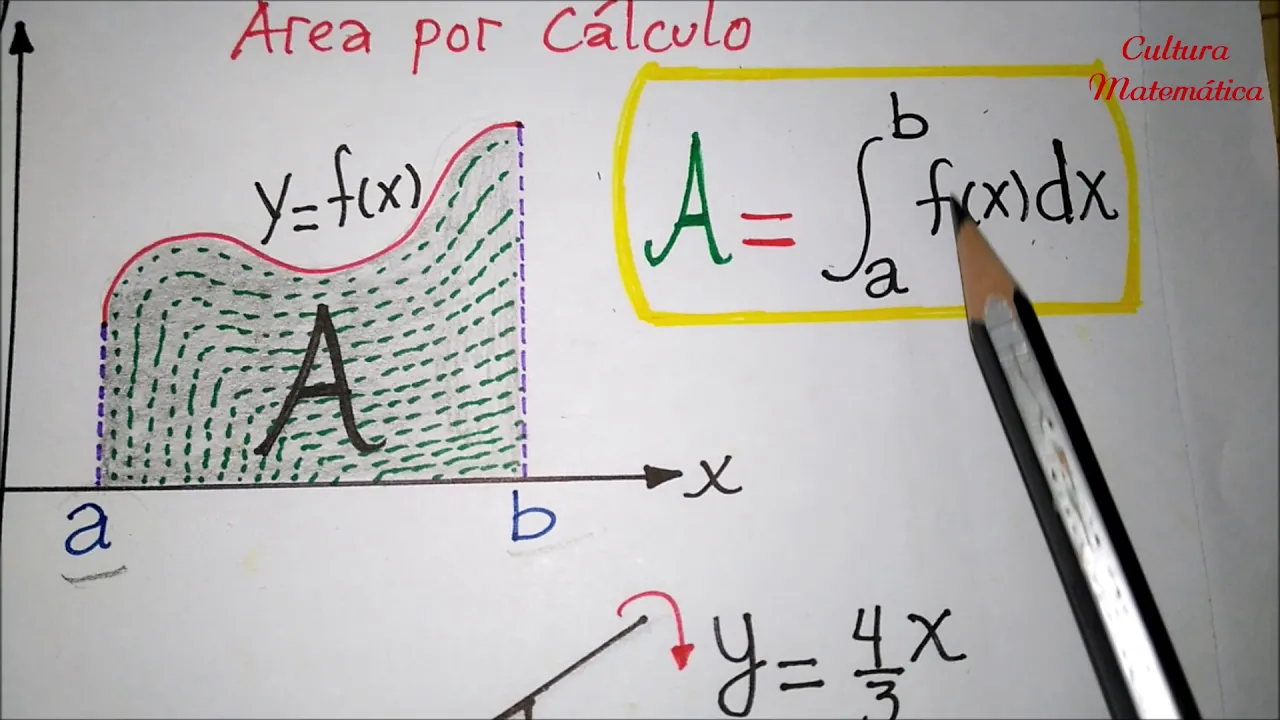 Área por Cálculo
Cultura
Matemática
y=f(x)
A = ∫_a^b f(x)dx
A
x
a
b
y = 4/3 x